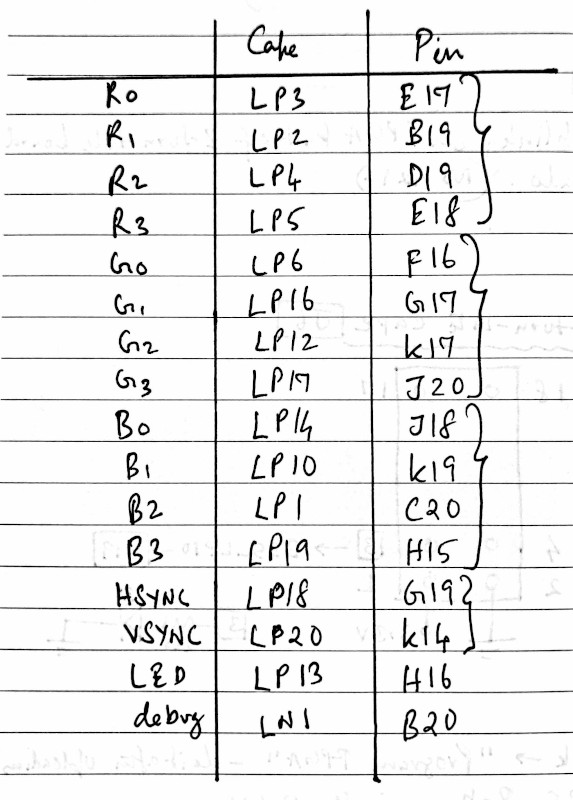 Cape Pin
R0 LP3 E17
R1 LP2 B19
R2 LP4 D19
R3 LP5 E18
G0 LP6 F16
G1 LP16 G17
G2 LP12 K17
G3 LP17 J20
B0 LP14 J18
B1 LP10 K19
B2 LP1 C20
B3 LP19 H15
HSYNC LP18 G19
VSYNC LP20 K14
LED LP13 H16
debug LN1 B20